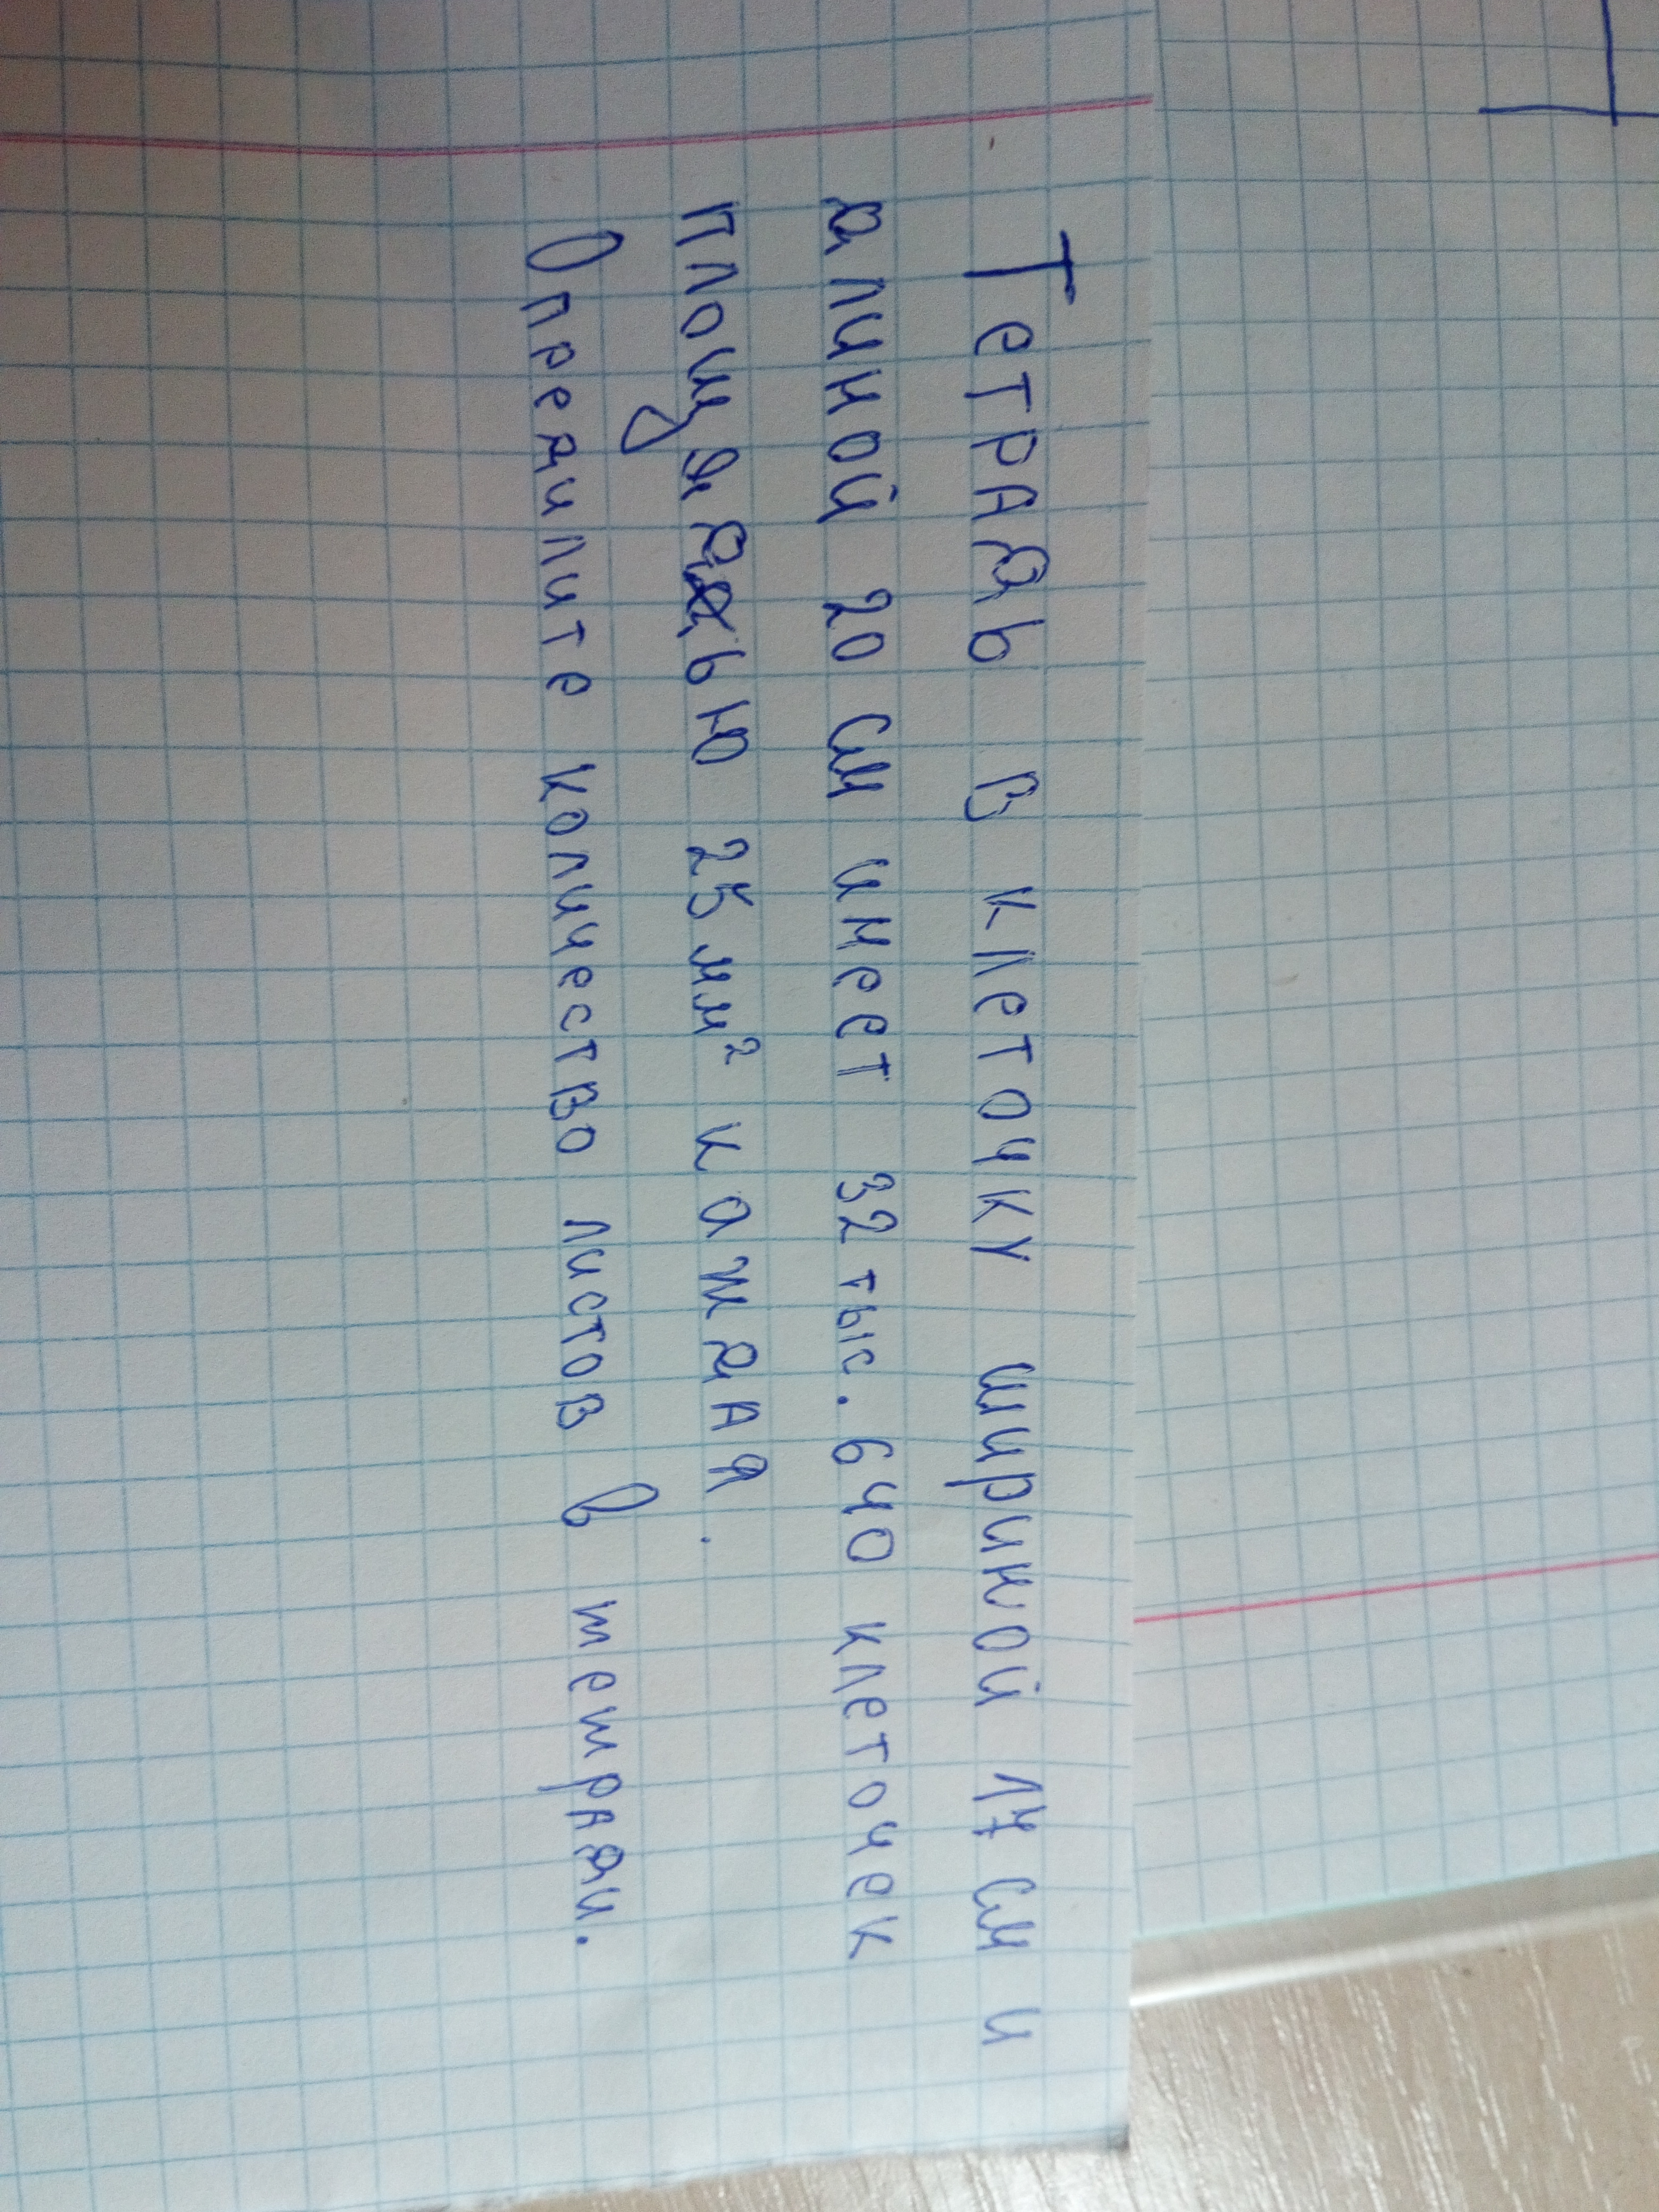 Тетрадь в клеточку шириной 17 см и
длиной 20 см имеет 32 тыс. 640 клеточек
площядью 25 мм² каждая.
Определите количество листов в тетради.